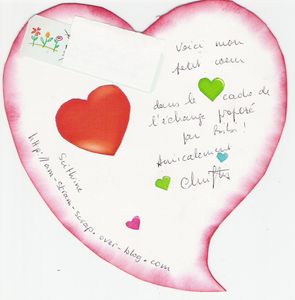 Voici mon
petit coeur
dans le cadre de
l'échange proposé
par Bribri !
Amicalement
Scithine
http://am-stram-scrap.over-blog.com